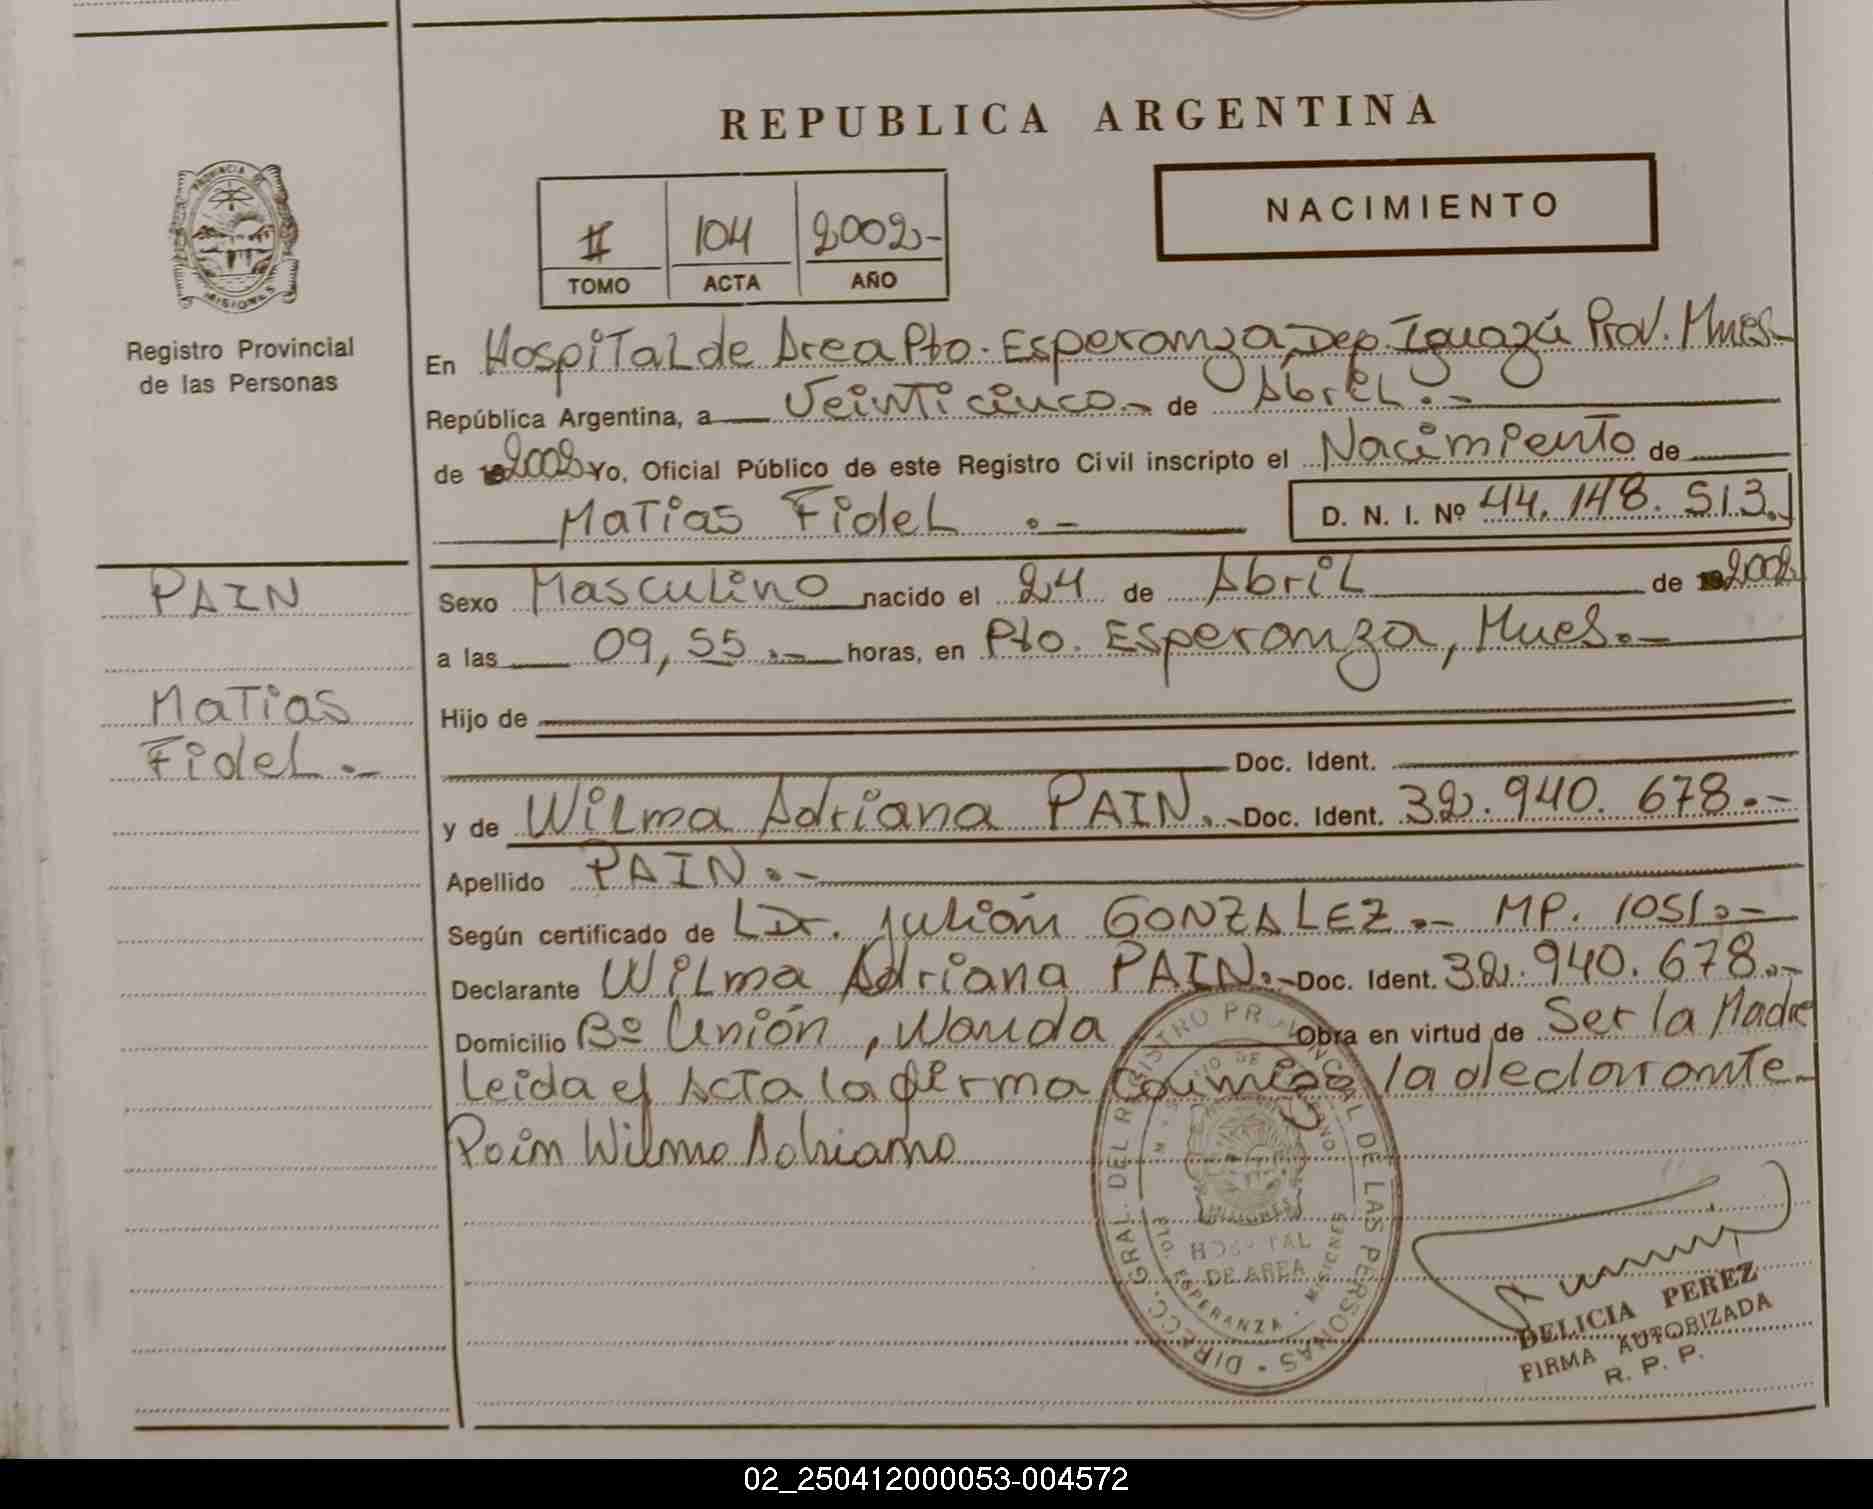 REPUBLICA ARGENTINA
NACIMIENTO
II 104 2002-
TOMO ACTA AÑO
PROVINCIA DE
MISIONES
Registro Provincial
de las Personas
En Hospital de Area Pto. Esperanza, Dep. Iguazú Prov. Mnes-
República Argentina, a Veinticinco.- de Abril.-
de 2002 Yo, Oficial Público de este Registro Civil inscripto el Nacimiento de
Matias Fidel .-
D. N. I. Nº 44.148.513.
PAIN
Matias
Fidel.-
Sexo Masculino nacido el 24 de Abril de 2002
a las 09,55.- horas, en Pto. Esperanza, Mnes.-
Hijo de
Doc. Ident.
y de Wilma Adriana PAIN.- Doc. Ident. 32.940.678.-
Apellido PAIN.-
Según certificado de Dr. Julián GONZALEZ.- MP. 1051.-
Declarante Wilma Adriana PAIN.- Doc. Ident. 32.940.678.-
Domicilio Bº Unión, Wanda Obra en virtud de Ser la Madre
Leida el Acta la firma conmigo la declarante-
Pain Wilma Adriana
DIRECC. GRAL. DEL REGISTRO PROVINCIAL DE LAS PERSONAS
HOSPITAL
DE AREA
PTO. ESPERANZA - MISIONES
DELICIA PEREZ
FIRMA AUTORIZADA
R. P. P.
02_250412000053-004572